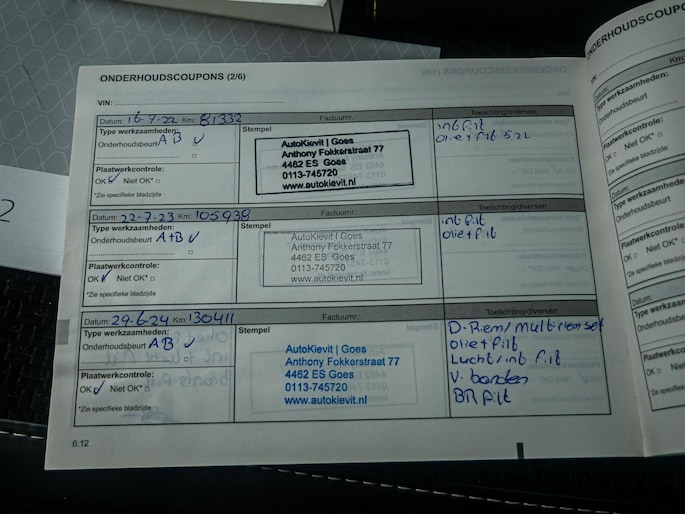 ONDERHOUDSCOUPONS (2/6)
VIN:
Datum: 16-7-22 Km: 81332 Factuurnr.: Toelichting/diversen
Type werkzaamheden:
Onderhoudsbeurt A B
Stempel
AutoKievit | Goes
Anthony Fokkerstraat 77
4462 ES Goes
0113-745720
www.autokievit.nl
int filt
olie + filt 5.2L
Plaatwerkcontrole:
OK Niet OK*
*Zie specifieke bladzijde
Datum: 22-7-23 Km: 105938 Factuurnr.: Toelichting/diversen
Type werkzaamheden:
Onderhoudsbeurt A+B
Stempel
AutoKievit | Goes
Anthony Fokkerstraat 77
4462 ES Goes
0113-745720
www.autokievit.nl
int filt
olie + filt
Plaatwerkcontrole:
OK Niet OK*
*Zie specifieke bladzijde
Datum: 29-6-24 Km: 130411 Factuurnr.: Toelichting/diversen
Type werkzaamheden:
Onderhoudsbeurt A B
Stempel
AutoKievit | Goes
Anthony Fokkerstraat 77
4462 ES Goes
0113-745720
www.autokievit.nl
D.Riem/multiriem set
olie + filt
Lucht/int filt
V. banden
BR filt
Plaatwerkcontrole:
OK Niet OK*
*Zie specifieke bladzijde
6.12
ONDERHOUDSCOUPO
Datum: Km:
Type werkzaamheden:
Onderhoudsbeurt
Plaatwerkcontrole:
OK Niet OK*
*Zie specifieke bladzijde
Datum:
Type werkzaamheden:
Onderhoudsbeurt
Plaatwerkcontrole:
OK Niet OK*
*Zie specifieke bladzijde
Datum:
Type werkzaamheden
Onderhoudsbeurt
Plaatwerkcontrole:
OK Niet OK*
*Zie specifieke bladzijde
2